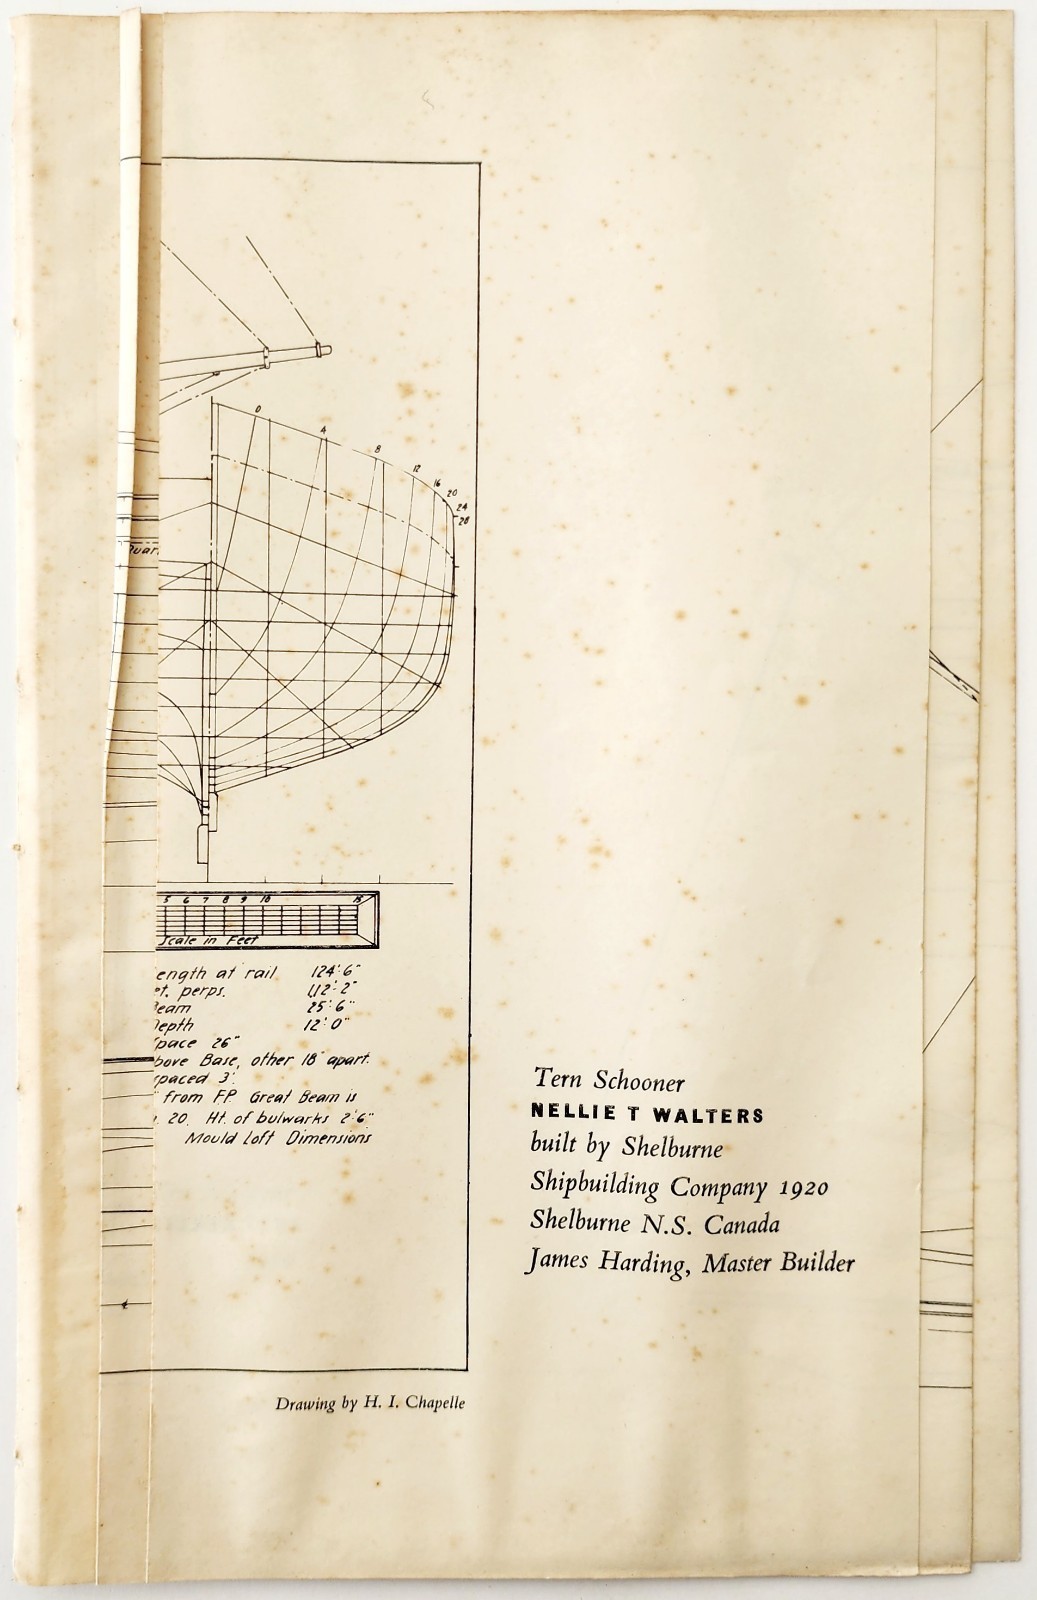 0
4
8
12
16
20
24
28
5 6 7 8 9 10 15
Scale in Feet
ength at rail 124'-6"
et. perps. 112'-2"
Beam 25'-6"
Depth 12'-0"
pace 26"
bove Base, other 18" apart.
paced 3'.
" from F.P. Great Beam is
20. Ht. of bulwarks 2'-6"
Mould Loft Dimensions
Tern Schooner
NELLIE T WALTERS
built by Shelburne
Shipbuilding Company 1920
Shelburne N.S. Canada
James Harding, Master Builder
Drawing by H. I. Chapelle